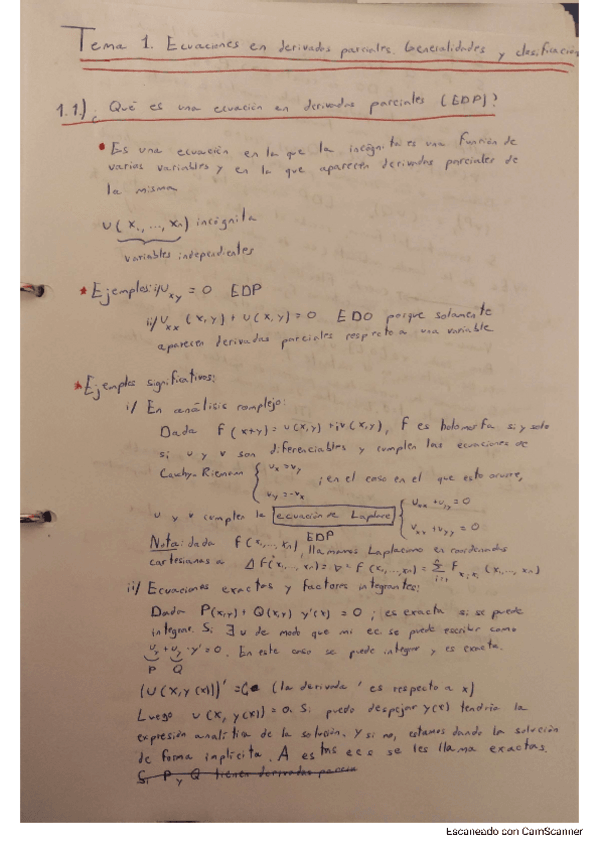 Tema 1. Ecuaciones en derivadas parciales. Generalidades y clasificación
1.1.) ¿Qué es una ecuación en derivadas parciales (EDP)?
• Es una ecuación en la que la incógnita es una función de
varias variables y en la que aparecen derivadas parciales de
la misma
u(x₁, ..., xₙ) incógnita
variables independientes
* Ejemplos: i/ u_xy = 0 EDP
ii/ u_xx (x,y) + u(x,y) = 0 EDO porque solamente
aparecen derivadas parciales respecto a una variable
* Ejemplos significativos:
i/ En análisis complejo:
Dada f(x+y) = u(x,y) + iv(x,y), f es holomorfa si y solo
si u y v son diferenciables y cumplen las ecuaciones de
Cauchy-Riemann { u_x = v_y
u_y = -v_x ; en el caso en el que esto ocurre,
u y v cumplen la ecuación de Laplace { u_xx + u_yy = 0
v_xx + v_yy = 0
EDP
Nota: dada f(x₁, ..., xₙ), llamamos Laplaciano en coordenadas
cartesianas a Δf(x₁, ..., xₙ) = ∇² f(x₁, ..., xₙ) = Σ f_xᵢxᵢ (x₁, ..., xₙ)
ii/ Ecuaciones exactas y factores integrantes:
Dada P(x,y) + Q(x,y) y'(x) = 0 ; es exacta si se puede
integrar. Si ∃ u de modo que mi ec se puede escribir como
+ u_y · y' = 0. En este caso se puede integrar y es exacta.
P Q
(u(x, y(x)))' = (la derivada ' es respecto a x)
Luego u(x, y(x)) = Si puedo despejar y(x) tendría la
expresión analítica de la solución. Y si no, estamos dando la solución
de forma implícita. A estas ecs se les llama exactas.
Si P y Q tienen derivadas parcia
Escaneado con CamScanner